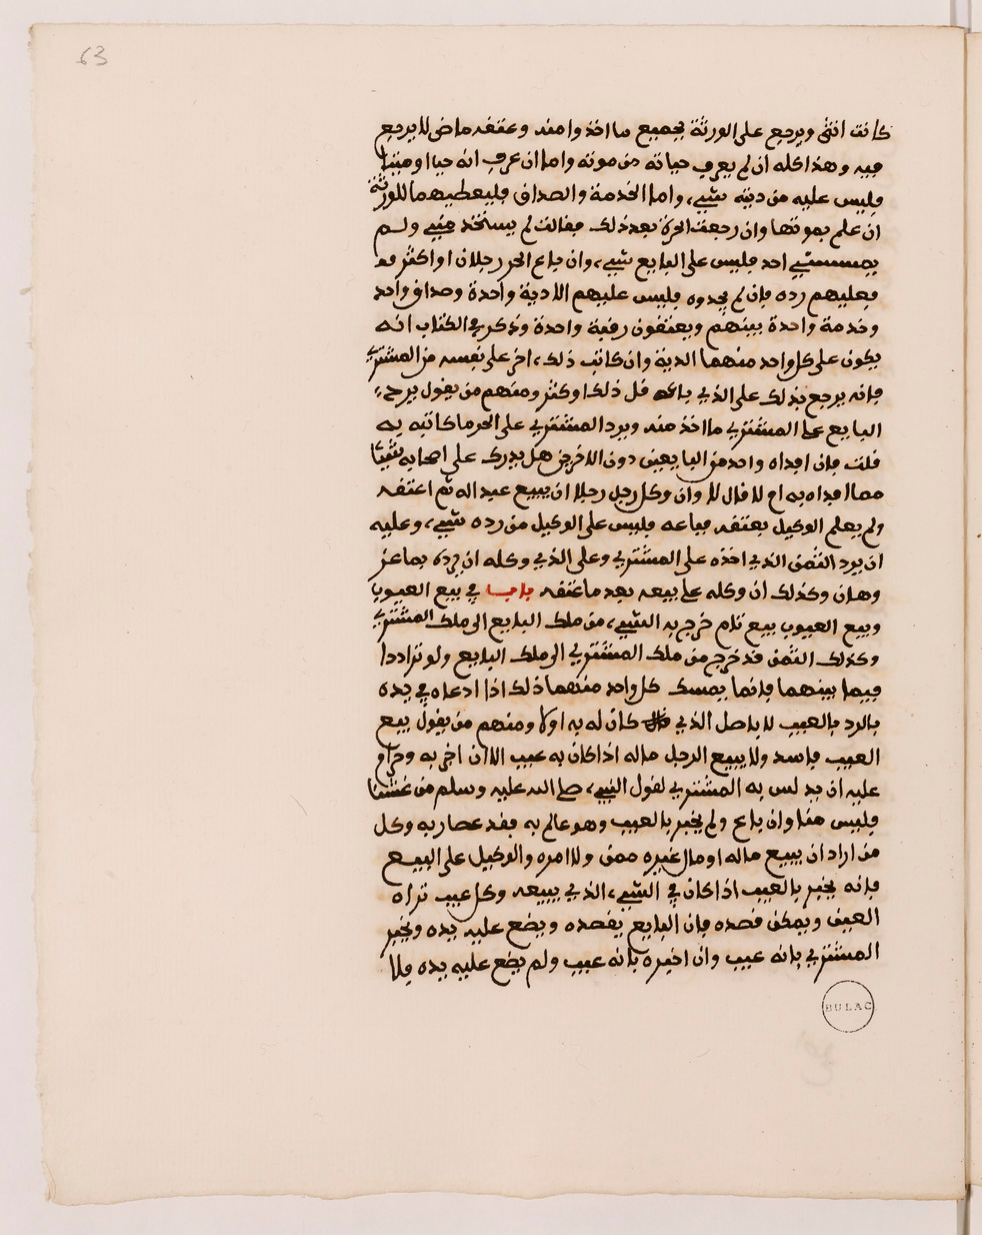 63
كانت انثى ويرجع على الورثة بجميع ما اخذوا منه وعتقه ماض لا يرجع
فيه وهذا كله ان لم يعرف حياته من موته واما ان عرف انه حيا او ميتا
فليس عليه من ديته شيء واما الخدمة والصداق فليعطيهما للورثة
ان علم بموتها وان رجعت الحرة بعد ذلك فقالت لم يستخدمني ولم
يمسسني احد فليس على البايع شيء وان باع الحر رجلان او اكثر
فعليهم رده فان لم يجدوه فليس عليهم الا دية واحدة وصداق واحد
وخدمة واحدة بينهم ويعتقون رقبة واحدة وذكر في الكتاب انه
يكون على كل واحد منهما الدية وان كاتب ذلك اخر على نفسه من المشتري
فانه يرجع بذلك على الذي باعه قل ذلك او كثر ومنهم من يقول يرجع
البايع على المشتري ما اخذ منه ويرد المشتري على الحر ما كاتبه به
قلت فان افداه واحد من البايعين دون الاخرين هل يدرك على اصحابه شيئا
مما افداه به ام لا قال لا وان وكل رجل رجلا ان يبيع عبدا له ثم اعتقه
ولم يعلم الوكيل بعتقه فباعه فليس على الوكيل من رده شيء وعليه
ان يرد الثمن الذي اخذه على المشتري وعلى الذي وكله ان يرده بما عز
وهان وكذلك ان وكله على بيعه بعد ما عتقه باب في بيع العيوب
وبيع العيوب بيع تام خرج به الشيء من ملك البايع الى ملك المشتري
وكذلك الثمن قد خرج من ملك المشتري الى ملك البايع ولو ترا ددا
فيما بينهما فانما يمسك كل واحد منهما ذلك اذا ادعاه في يده
بالرد بالعيب لا باصل الذي كان له به اولا ومنهم من يقول بيع
العيب فاسد ولا يبيع الرجل ماله اذا كان به عيب الا ان اخبر به وحرام
عليه ان يدلس به المشتري لقول النبيء صلى الله عليه وسلم من غشنا
فليس منا وان باع ولم يخبر بالعيب وهو عالم به فقد عصا ربه وكل
من اراد ان يبيع ماله او مال غيره ممن ولا امره والوكيل على البيع
فانه يخبر بالعيب اذا كان في الشيء الذي يبيعه وكل عيب تراه
العين ويمكن قصده فان البايع يقصده ويضع عليه يده ويخبر
المشتري بانه عيب وان اخبره بانه عيب ولم يضع عليه يده فلا
BULAC